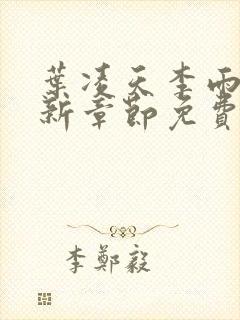 葉凌天李雨
新章節免費
李鄭毅